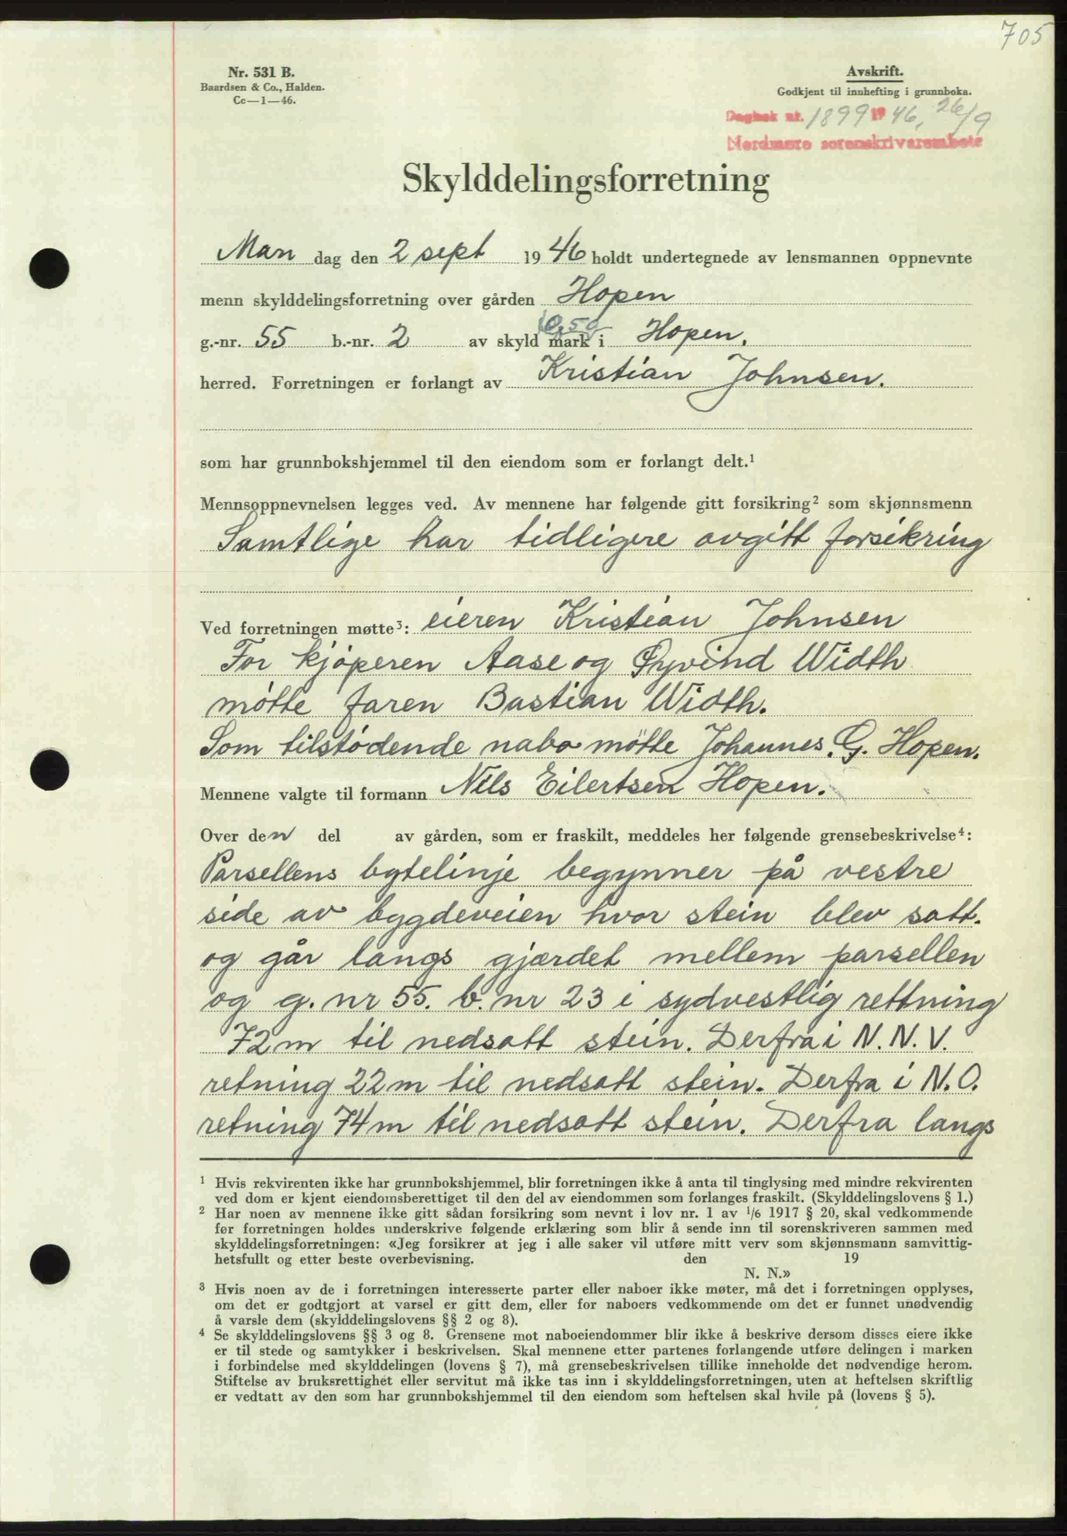 705
Nr. 531 B.
Baardsen & Co., Halden.
Cc—1—46.
Avskrift.
Godkjent til innhefting i grunnboka.
Dagbok nr. 1899 1946, 26/9
Nordmøre sorenskrivarembete
Skylddelingsforretning
Man dag den 2 sept 1946 holdt undertegnede av lensmannen oppnevnte
menn skylddelingsforretning over gården Hopen
g.-nr. 55 b.-nr. 2 av skyld 0,50 mark i Hopen.
herred. Forretningen er forlangt av Kristian Johnsen.
som har grunnbokshjemmel til den eiendom som er forlangt delt.¹
Mennsoppnevnelsen legges ved. Av mennene har følgende gitt forsikring² som skjønnsmenn
Samtlige har tidligere avgitt forsikring
Ved forretningen møtte³: eieren Kristian Johnsen
For kjøperen Aase og Øyvind Width
møtte faren Bastian Width.
Som tilstødende nabo møtte Johannes. G. Hopen.
Mennene valgte til formann Nils Eilertsen Hopen.
Over den del av gården, som er fraskilt, meddeles her følgende grensebeskrivelse⁴:
Parsellens bytelinje begynner på vestre
side av bygdeveien hvor stein blev satt.
og går langs gjærdet mellem parsellen
og g. nr 55. b. nr 23 i sydvestlig rettning
72m til nedsatt stein. Derfra i N.N.V.
retning 22m til nedsatt stein. Derfra i N.O.
retning 74m til nedsatt stein. Derfra langs
¹ Hvis rekvirenten ikke har grunnbokshjemmel, blir forretningen ikke å anta til tinglysing med mindre rekvirenten
ved dom er kjent eiendomsberettiget til den del av eiendommen som forlanges fraskilt. (Skylddelingslovens § 1.)
² Har noen av mennene ikke gitt sådan forsikring som nevnt i lov nr. 1 av 1/6 1917 § 20, skal vedkommende
før forretningen holdes underskrive følgende erklæring som blir å sende inn til sorenskriveren sammen med
skylddelingsforretningen: «Jeg forsikrer at jeg i alle saker vil utføre mitt verv som skjønnsmann samvittig-
hetsfullt og etter beste overbevisning. den 19
N. N.»
³ Hvis noen av de i forretningen interesserte parter eller naboer ikke møter, må det i forretningen opplyses,
om det er godtgjort at varsel er gitt dem, eller for naboers vedkommende om det er funnet unødvendig
å varsle dem (skylddelingslovens §§ 2 og 8).
⁴ Se skylddelingslovens §§ 3 og 8. Grensene mot naboeiendommer blir ikke å beskrive dersom disses eiere ikke
er til stede og samtykker i beskrivelsen. Skal mennene etter partenes forlangende utføre delingen i marken
i forbindelse med skylddelingen (lovens § 7), må grensebeskrivelsen tillike inneholde det nødvendige herom.
Stiftelse av bruksrettighet eller servitut må ikke tas inn i skylddelingsforretningen, uten at heftelsen skriftlig
er vedtatt av den som har grunnbokshjemmel til den eiendom som heftelsen skal hvile på (lovens § 5).